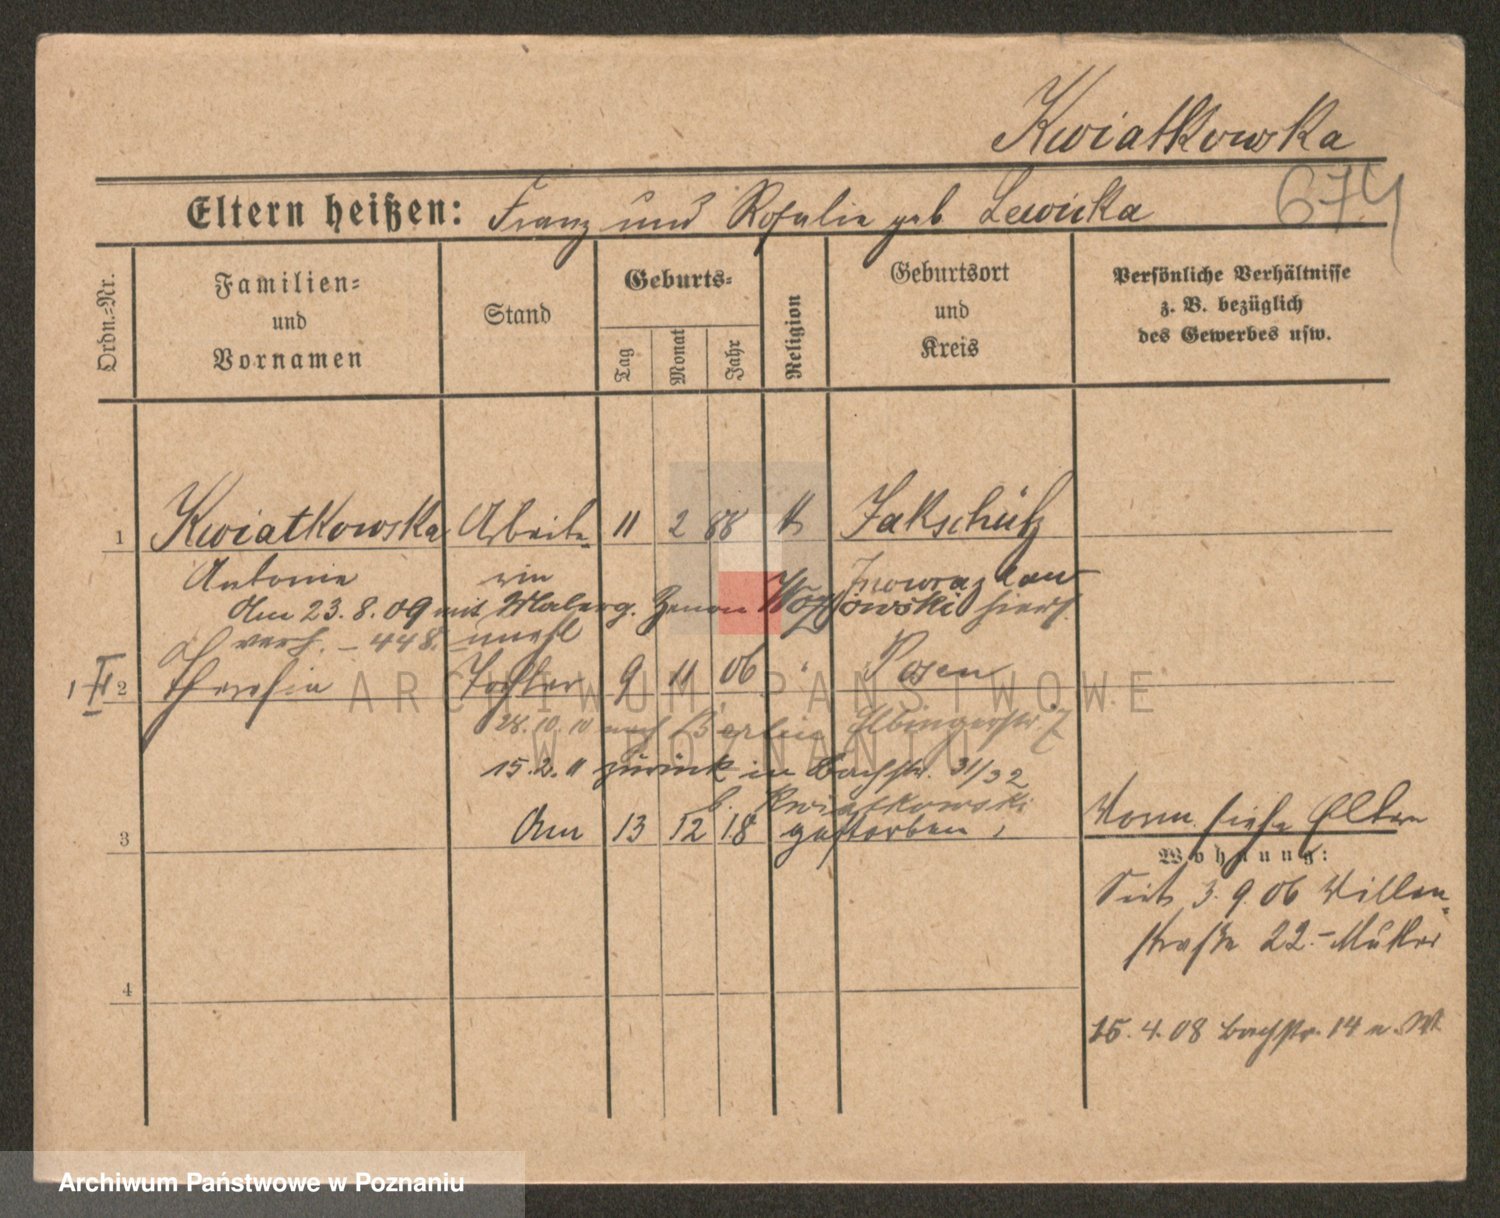 Kwiatkowska
674
Eltern heißen: Franz und Rosalie geb Lewicka
Ordn.-Nr.
Familien-
und
Vornamen
Stand
Geburts-
Tag
Monat
Jahr
Religion
Geburtsort
und
Kreis
Persönliche Verhältnisse
z. B. bezüglich
des Gewerbes usw.
1 Kwiatkowska Arbeite- 11 2 88 k Jakschütz
Antonie rin Inowrazlaw
Am 23.8.09 mit Malerg. Zenon hier
verh. – 448. unehl
1 2 Theresia Tochter 9 11 06 " Posen
28.10.10 nach Berlin Elbingerstr. 7
15.2.11 zurück in Bachstr. 31/32
b. Kwiatkowski
3 Am 13 12 18 gestorben,
Vorm. siehe Eltern
Wohnung:
Seit 3.9.06 Villen-
straße 22.–
15.4.08 Bachstr. 14
4
ARCHIWUM PAŃSTWOWE
W POZNANIU
Archiwum Państwowe w Poznaniu